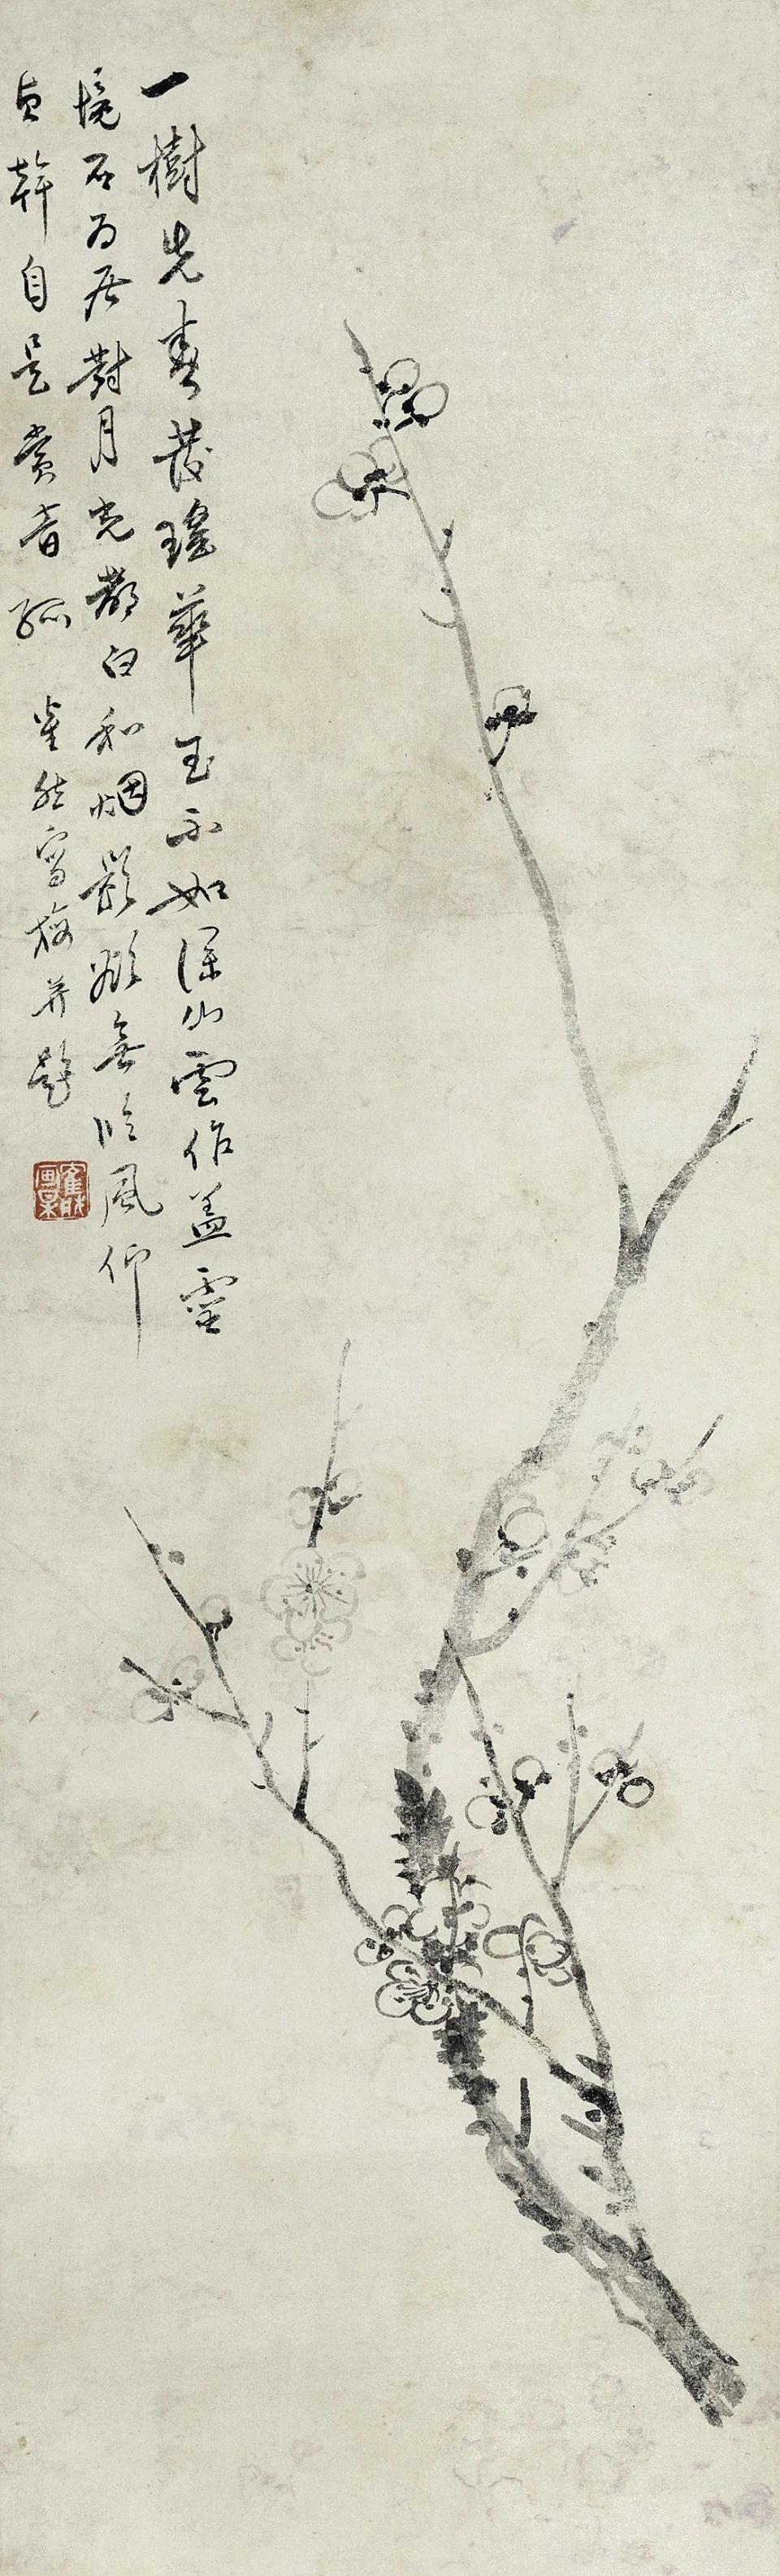 一樹先春發瑤華玉不如深山雲作蓋靈
境石為居對月光都白和烟影欲無臨風仰
貞幹自是賞音孤 崔然寫梅并題